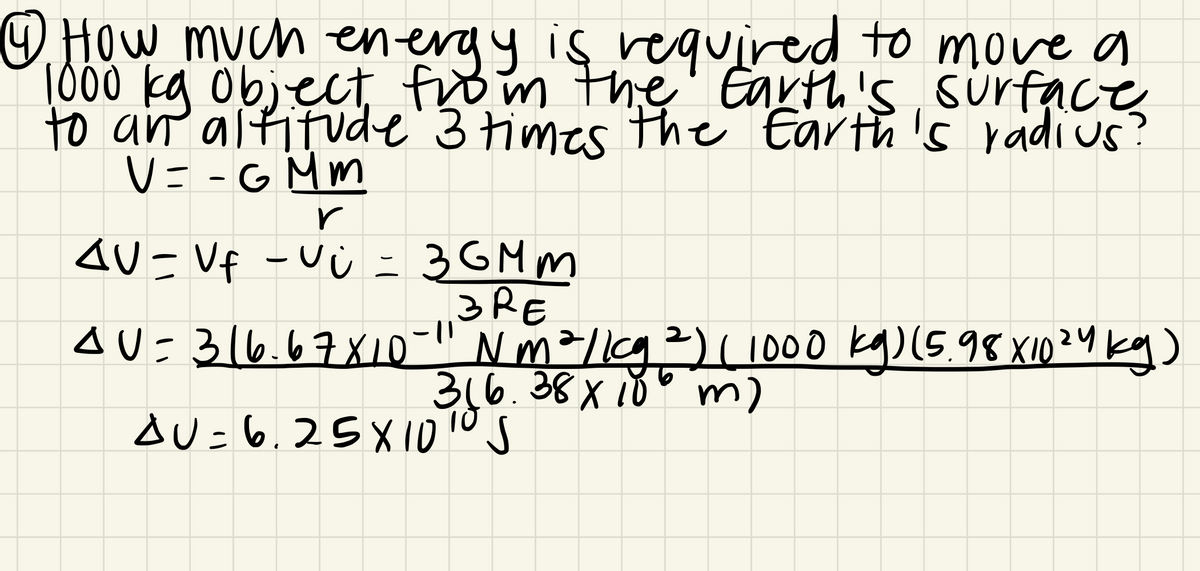 ④ How much energy is required to move a
1000 kg object from the Earth's surface
to an altitude 3 times the Earth's radius?
U = - G Mm
r
ΔU = Uf - Ui = 3GMm
3RE
ΔU = 3(6.67×10⁻¹¹ Nm²/kg²)(1000 kg)(5.98×10²⁴ kg)
3(6.38×10⁶ m)
ΔU = 6.25×10¹⁰ J